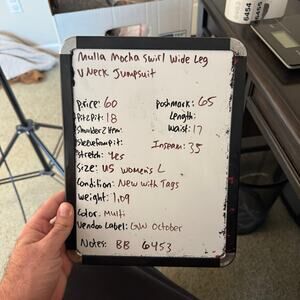 Mulla Mocha Swirl Wide Leg
V Neck Jumpsuit
Price: 60
Postmark: 65
Pit2Pit: 18
Length:
Shoulder2Hem:
Waist: 17
Sleeve2Armpit:
Inseam: 35
Stretch: Yes
Size: US Women's L
Condition: New with Tags
Weight: 1.09
Color: Multi
Vendoo Label: GW October
Notes: BB 6453
6455
6454